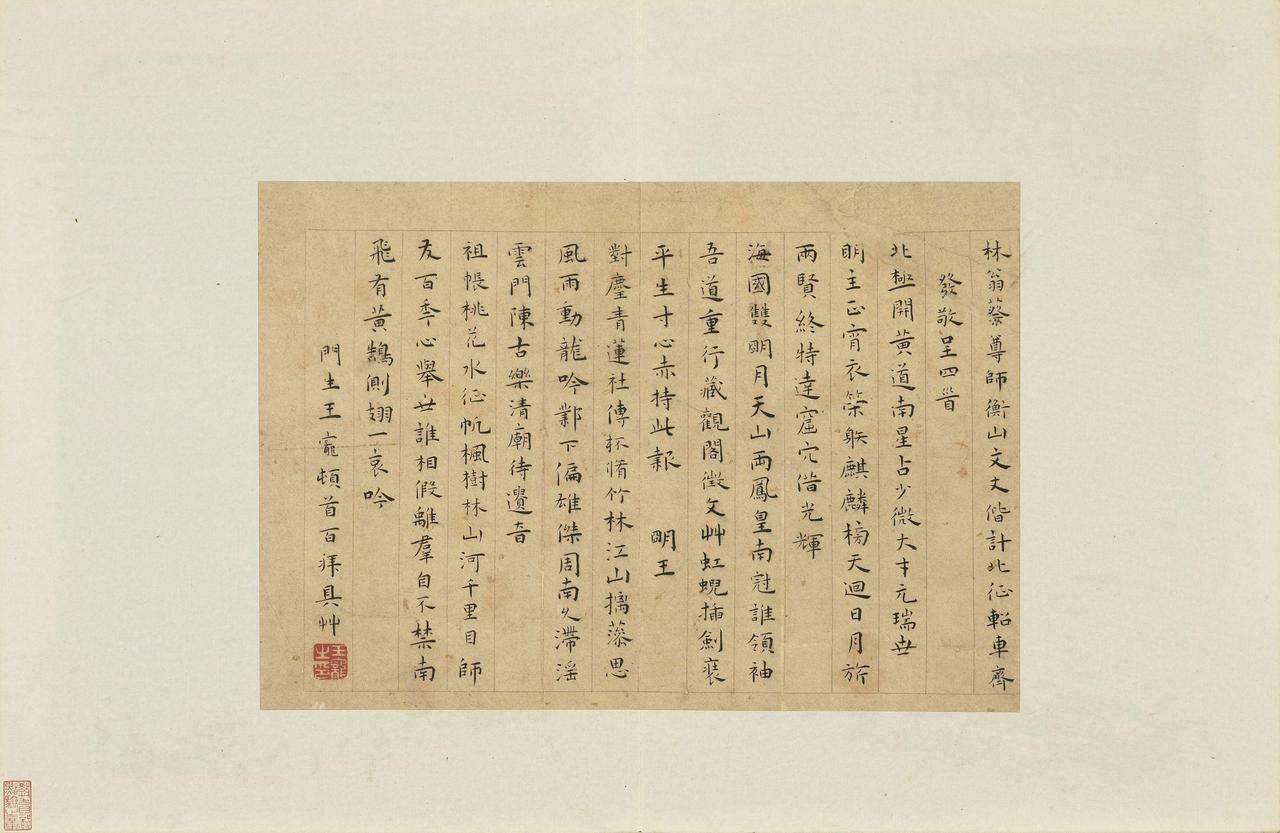 林翁蔡尊師衡山文丈偕計北征軺車齊
發敬呈四首
北極開黃道南星占少微大才元瑞世
明主正宵衣策躲麒麟榜天迴日月旂
兩賢終特達窟穴借光輝
海國雙明月天山兩鳳皇南冠誰領袖
吾道重行藏觀閣徵文艸虹蜺插劍裝
平生寸心赤持此報 明王
對麈青蓮社傳杯脩竹林江山摛藻思
風雨動龍吟鄴下偏雄傑周南久滯淫
雲門陳古樂清廟待遺音
祖帳桃花水征帆楓樹林山河千里目師
友百季心舉世誰相假離羣自不禁南
飛有黃鵠側翅一哀吟
門生王寵頓首百拜具艸